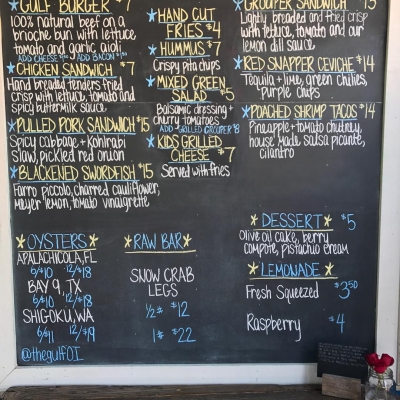 GULF BURGER $7
100% natural beef on a
brioche bun with lettuce,
tomato and garlic aioli
ADD CHEESE ADD BACON
*CHICKEN SANDWICH $7
Hand breaded tenders fried
crisp with lettuce, tomato and
spicy buttermilk sauce
*PULLED PORK SANDWICH $15
Spicy cabbage + Kohlrabi
Slaw, pickled red onion
*BLACKENED SWORDFISH $15
Farro piccolo, charred cauliflower,
meyer lemon, tomato vinaigrette
*HAND CUT
FRIES $4
*HUMMUS $7
Crispy pita chips
*MIXED GREEN
SALAD $5
Balsamic dressing +
cherry tomatoes
ADD GRILLED GROUPER $8
*KIDS GRILLED
CHEESE $7
Served with fries
GROUPER SANDWICH $15
Lightly breaded and fried crisp
with lettuce, tomato and our
lemon dill sauce
*RED SNAPPER CEVICHE $14
Tequila + lime, green chilies,
purple chips
*POACHED SHRIMP TACOS $14
Pineapple + tomato chutney,
house made salsa picante,
cilantro
*OYSTERS*
APALACHICOLA, FL
6/$10 12/$18
BAY 9, TX
6/$10 12/$18
SHIGOKU, WA
6/$11 12/$19
@thegulfOI
*RAW BAR*
SNOW CRAB
LEGS
1/2# $12
1# $22
*DESSERT* $5
Olive oil cake, berry
compote, pistachio cream
*LEMONADE*
Fresh Squeezed $3.50
Raspberry $4